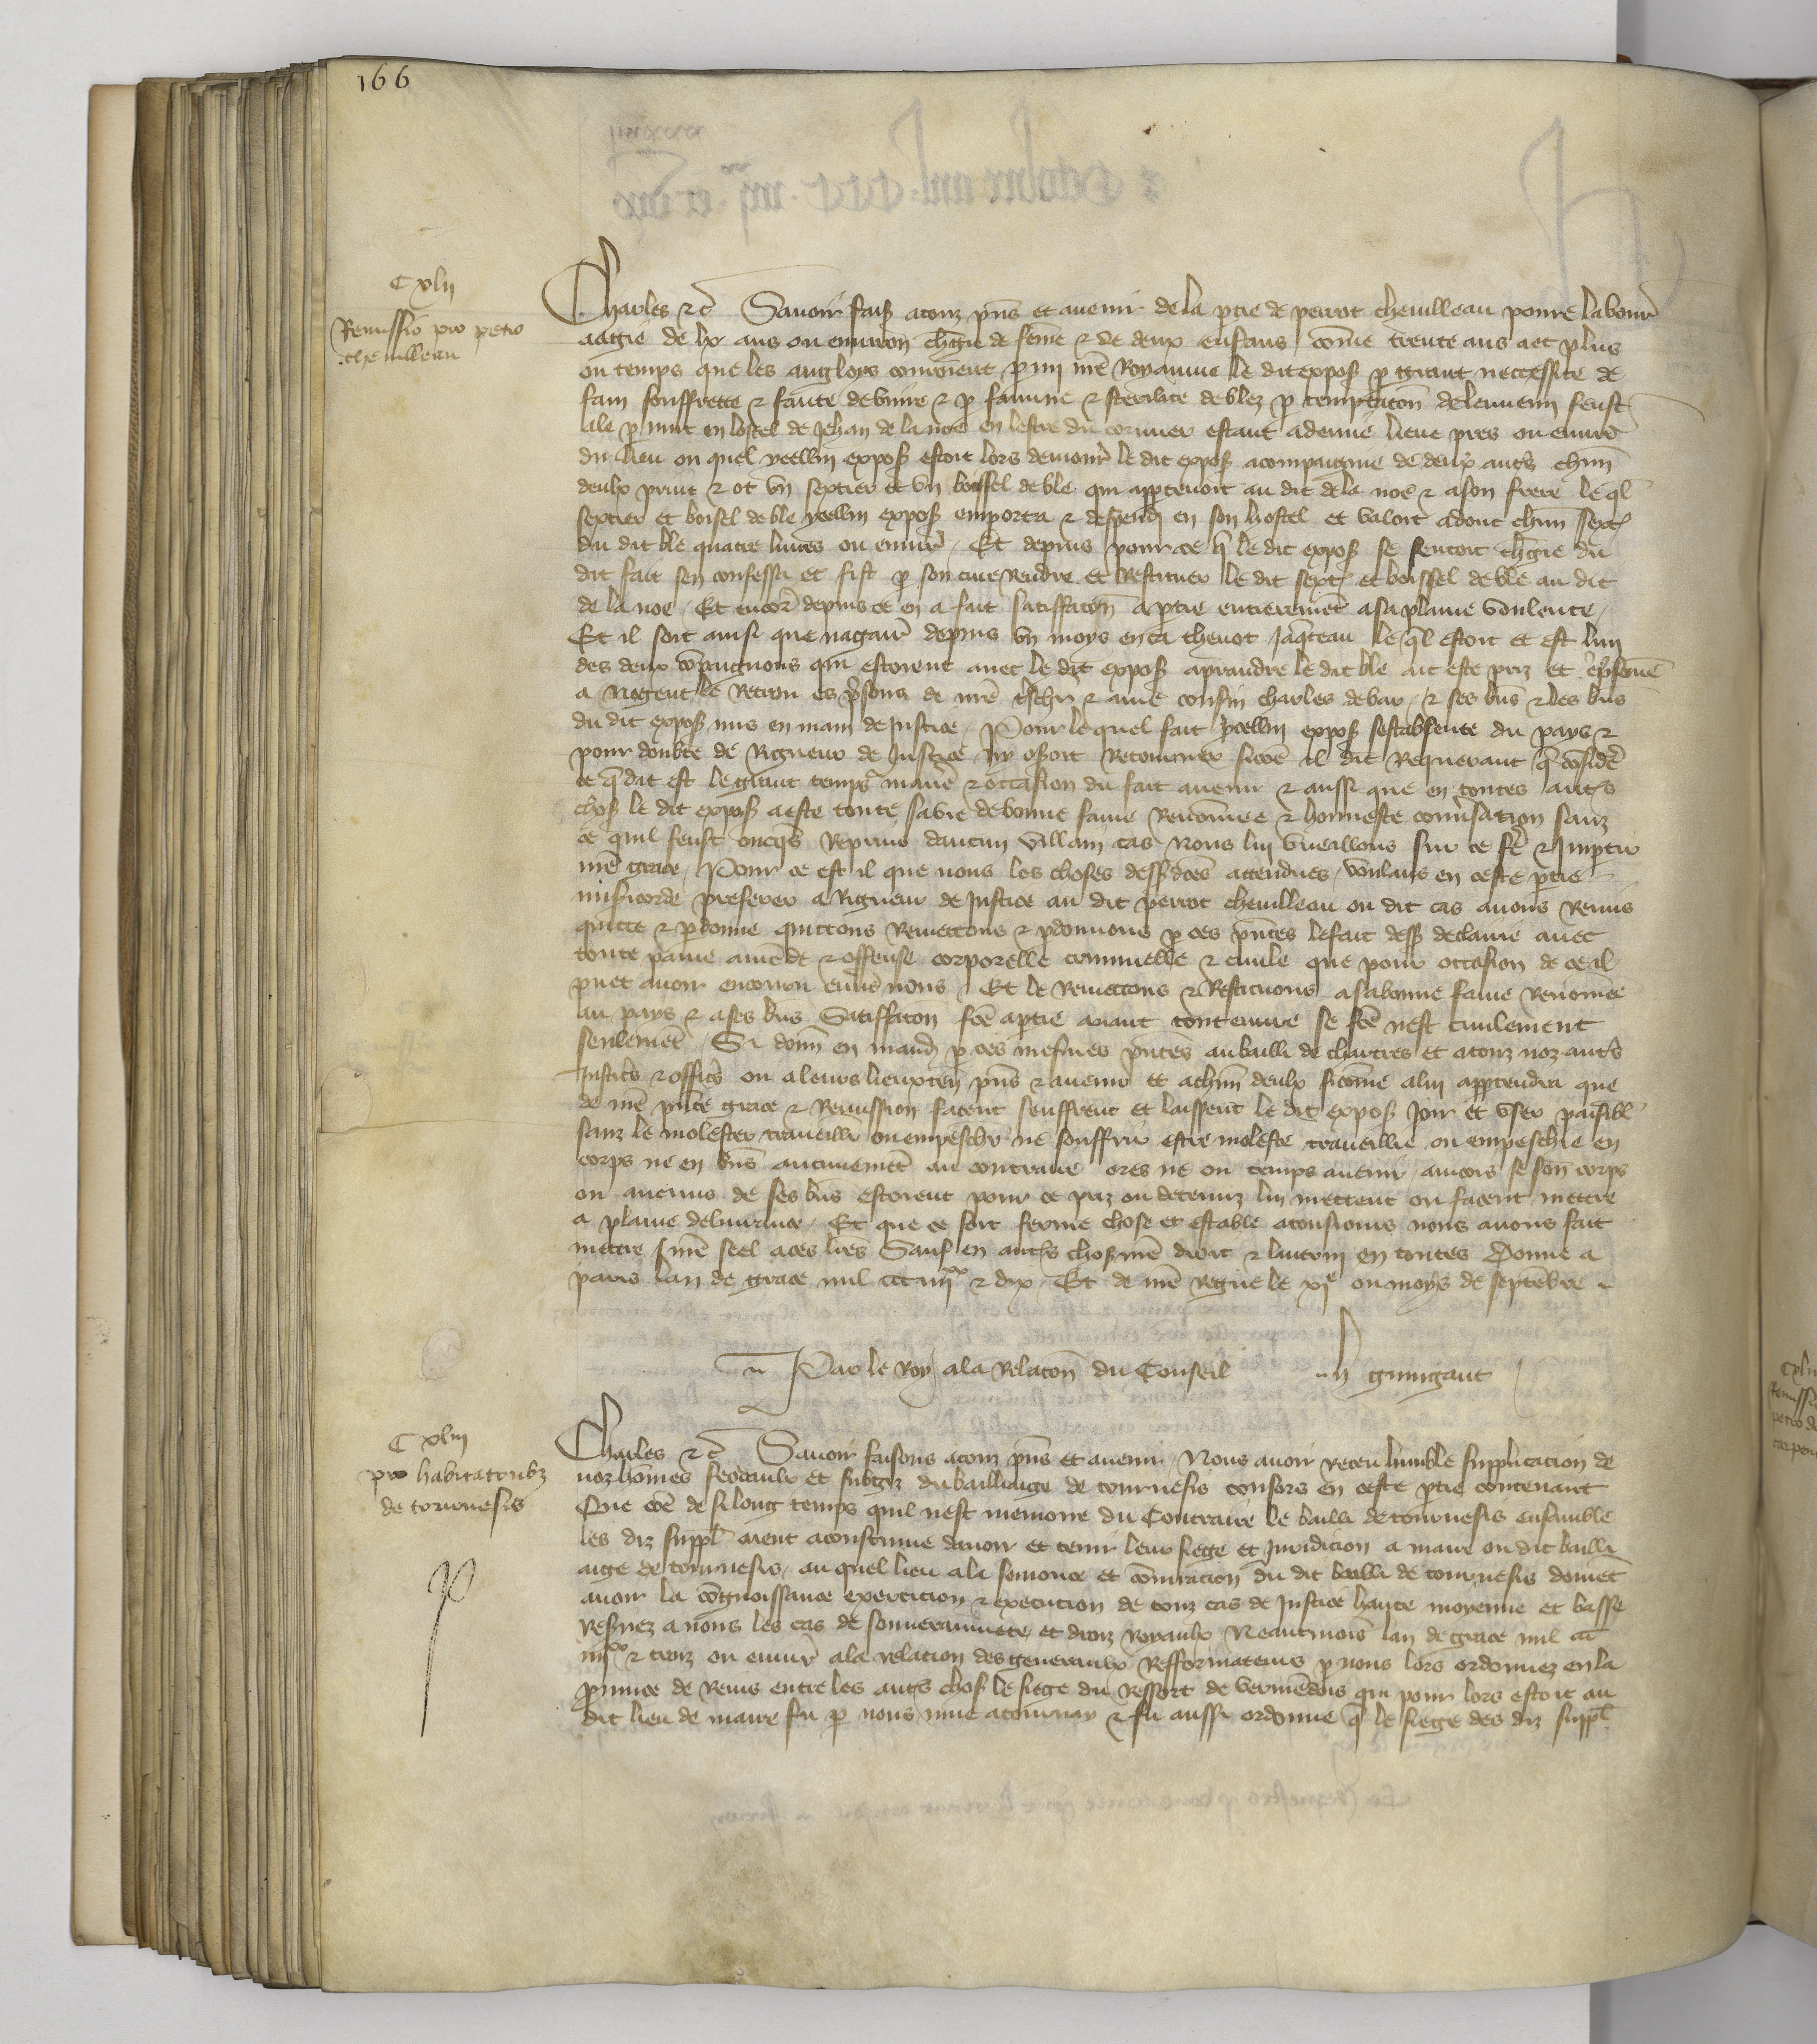 166
Cxlii
Remissio pro petro
chenilleau
Charles etc Savoir fais̃ a touz pñs et avenir de la ptie de perrot chenilleau povre labour̃
aagie de lx ans ou environ ch̃gie de fem̃e et de deux enfans com̃e trente ans a et plus
ou temps que les angloys couroient p mi nr̃e Royaume le dit expos̃ p grant neccessite de
fain souffrette et faute de vivre et p famine et sterilite de blez p temptacõn de lennemi feust
ale p nuit en lostel de Jehan de la noe en lestre du cormier estant a demie lieue pres ou envirõ
du lieu ou quel ycellui expos̃ estoit lors demour̃ le dit expos̃ acompaignie de deux autr̃s chũn
deulx print et ot un septier et un boissel de ble qui apptenoit au dit de la noe et a son frere le ql̃
septier et boisel de ble ycellui expos̃ emporta et despendi en son hostel et valoit adonc chũn sext̃
du dit ble quatre livres ou envir̃ Et depuis pour ce q̃ le dit expos̃ se sentoit ch̃gie du
dit fait sen confessa et fist p son cure Rendre et Restituer le dit sext̃ et boissel de ble au dit
de la noe Et encor̃ depuis ce en a fait satiffacõn a ptie entieremẽt a sa plaine voulente
Et il soit ainsi que nagair̃ depuis un moys en ca thenot Jaq̃teau le q̃l estoit et est lun
des deux cõpaignons qui estoient avec le dit expos̃ a prandre le dit ble ait este priz et emprisonne
a Nogent le Retrou es p̃sons de nr̃e tr̃schr̃ et ame cousin charles de bar et ses bñs et les bñs
du dit expos̃ mis en main de Justice Pour le quel fait ycellui expos̃ sest absente du pays et
pour doubte de Rigueur de Justice ny oseroit Retourner sicõe il dit Requerant q̃ cõsider̃
ce q̃ dit est le grant temps mañe et occasion du fait avenu et aussi que en toutes autr̃s
chos̃ le dit expos̃ a este toute sa vie de bonne fame Renõmee et honneste convsation sanz
ce quil feust oncqs̃ Reprins daucun villain cas Nous lui vueillons sur ce fr̃e et Impartir
nr̃e grace Pour ce est il que nous les choses dessus dc̃es attendues voulans en ceste ptie
miscorde preferer a Rigueur de Justice au dit perrot chenilleau ou dit cas avons Remis
quitte et pdonne quittons Remettons et pdonnons p ces pñtes le fait dess̃ declaire avec
toute paine amẽde et offense corporelle criminelle et civile que pour occasion de ce il
puet avoir encouru envs̃ nous Et le Remettons et Restituons a sa bonne fame Renomee
au pays et a ses bñs Satiffacõn fc̃e a ptie avant toute euvre se fc̃e nest civilement
seulemẽt Si donñ en mand̃ p ces mesmes pñtes au bailli de chartres et a touz noz autr̃s
Justic̃s et offic̃s ou a leurs lieuxteñ pñs et avenir et a chũn deulx sicõme a lui apptendra que
de nr̃e pñte grace et Remission facent seuffrent et laissent le dit expos̃ Joir et user paisibl̃
sanz le molester traveillr̃ ou empeschr̃ ne souffrir estre moleste travaillie ou empeschie en
corps ne en bñs aucunemẽt au contraire ores ne ou temps avenir aincois se son corps
ou aucuns de ses bñs estoient pour ce priz ou detenuz lui mettent ou facent mettre
a plaine delivrance Et que ce soit ferme chose et estable a tousiours nous avons fait
mettre nr̃e seel a ces lrẽs Sauf en autr̃s chos̃ nr̃e droit et lautrui en toutes Donne a
paris lan de grace mil ccc iiiixx et dix Et de nr̃e regne le xie ou moys de septẽbre
Par le Roy a la Relacõn du Conseil H guingant
Cxliii
pro habitatoribz
de tornnesis
Charles etc Savoir faisons a touz pñs et avenir Nous avoir receu lumble supplicacion de
noz hõmes feodaulx et subgiz du bailliaige de tournesis consors en ceste ptie contenant
Que cõe de si long temps quil nest memoire du Contraire le bailli de tournesis ensamble
les diz suppl̃ aient acoustume davoir et tenir leur siege et Juridicion a maire ou dit bailli
aige de tournesis au quel lieu a la semonce et cõniracion du dit bailli de tournesis doivẽt
avoir la cõgnoissance exercicion et execucion de touz cas de Justice haute moyenne et basse
Resvez a nous les cas de souverainnete et droiz Royaulx Neantmois lan de grace mil ccc
iiiixx et troiz ou envir̃ a la relacion des generaulx Refformateurs p nous lors ordonnez en la
province de Reins entre les autr̃s chos̃ le siege du ressort de vermẽdois qui pour lors estoit au
dit lieu de maire fu p nous mue a tournay et fu aussi ordonne q̃ le siege des diz suppl̃